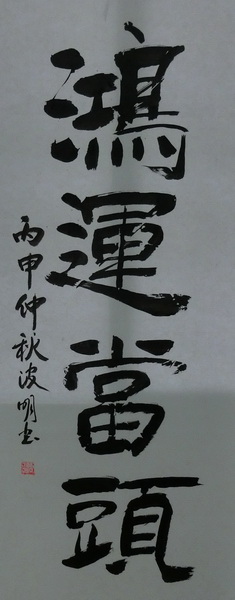 鴻運當頭
丙申仲秋波明书